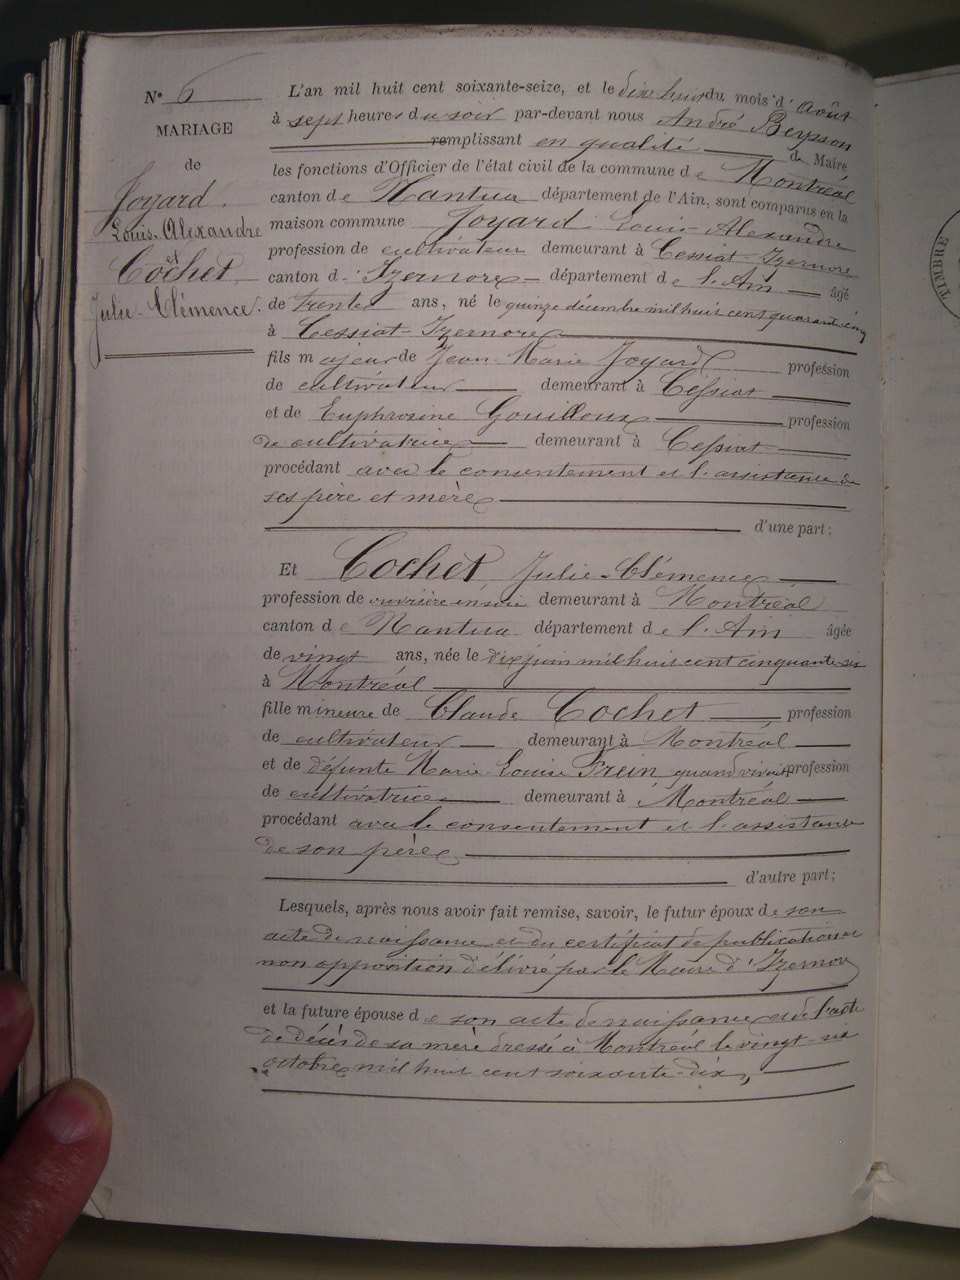 N° 6
MARIAGE
de
Joyard
Louis-Alexandre
et
Cochet
Julie-Clémence.
L'an mil huit cent soixante-seize, et le dix huit du mois d'août
à sept heures du soir par-devant nous André Beysson
remplissant en qualité de Maire
les fonctions d'Officier de l'état civil de la commune de Montréal
canton de Nantua département de l'Ain, sont comparus en la
maison commune Joyard Louis-Alexandre
profession de cultivateur demeurant à Cessiat-Izernore
canton d'Izernore département de l'Ain âgé
de trente ans, né le quinze décembre mil huit cent quarante cinq
à Cessiat-Izernore
fils majeur de Jean-Marie Joyard profession
de cultivateur demeurant à Cessiat
et de Euphrosine Gouilloux profession
de cultivatrice demeurant à Cessiat
procédant avec le consentement et l'assistance de
ses père et mère
d'une part;
Et Cochet Julie-Clémence
profession de ouvrière en soie demeurant à Montréal
canton de Nantua département de l'Ain âgée
de vingt ans, née le dix juin mil huit cent cinquante six
à Montréal
fille mineure de Claude Cochet profession
de cultivateur demeurant à Montréal
et de défunte Marie Louise quand vivait profession
de cultivatrice demeurant à Montréal
procédant avec le consentement et l'assistance
de son père
d'autre part;
Lesquels, après nous avoir fait remise, savoir, le futur époux de son
acte de naissance et du certificat de publication et
non opposition délivré par le Maire d'Izernore
et la future épouse de son acte de naissance et de l'acte
de décès de sa mère dressé à Montréal le vingt-six
octobre mil huit cent soixante-dix,
TIMBRE